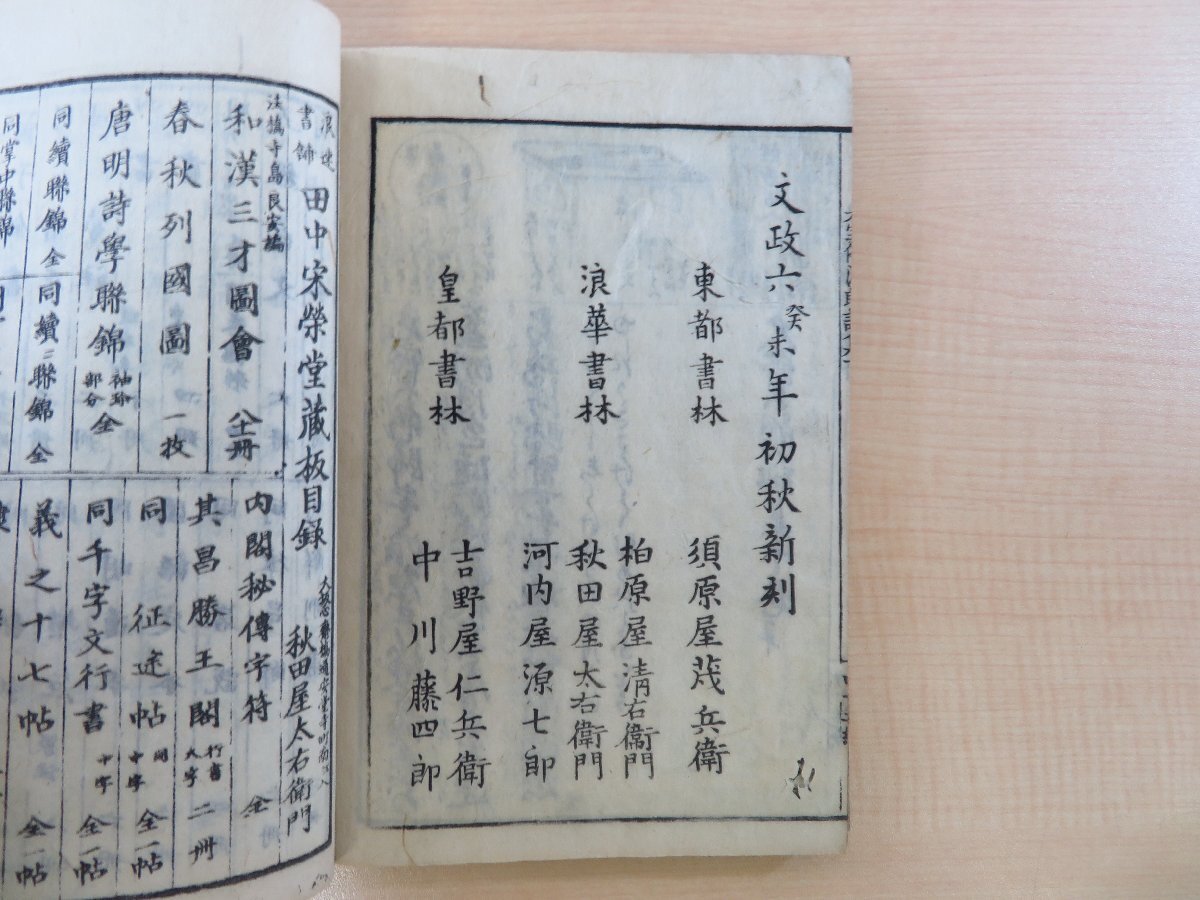 文政六癸未年初秋新刻
東都書林
須原屋茂兵衛
浪華書林
柏原屋清右衞門
秋田屋太右衛門
河内屋源七郎
皇都書林
吉野屋仁兵衛
中川藤四郎
浪速書鋪 田中宋榮堂藏板目録
秋田屋太右衛門
法橋寺島良安編
和漢三才圖會 八十一册
春秋列國圖 一枚
唐明詩學聯錦 袖珍部分 全
同續聯錦 全
同續三聯錦 全
内閣秘傳字符 全
其昌勝王閣 行書大字 二册
同征途帖 中字 全一帖
同千字文行書 中字 全一帖
羲之十七帖 全一帖